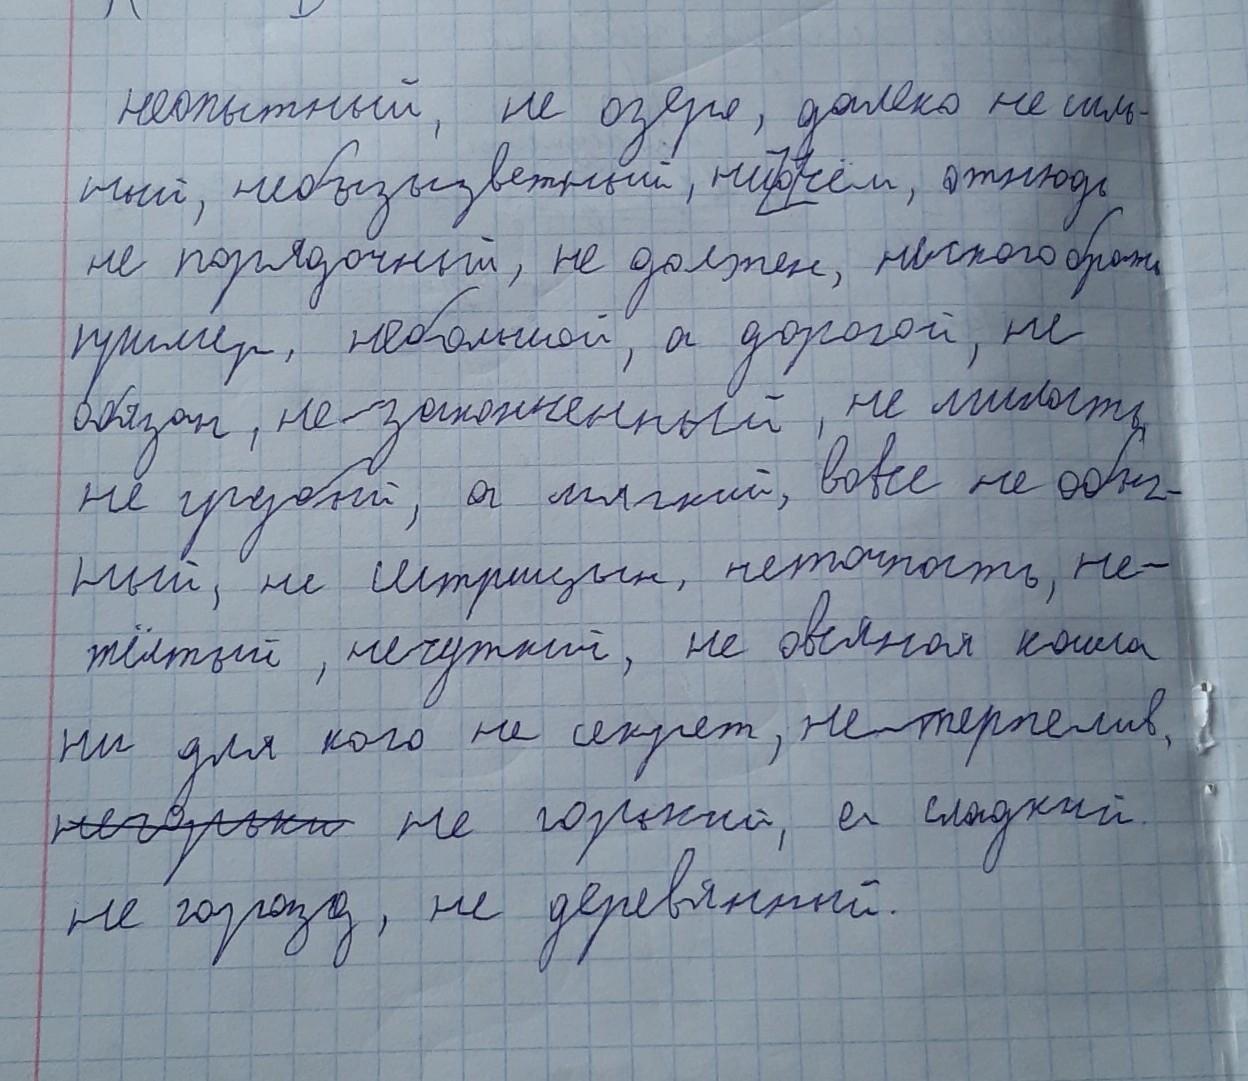 неопытный, не озеро, далеко не силь-
ный, небызызветный, ни чём, отнюдь
не порядочный, не должен, ни с кого брать
пример, небольшой, а дорогой, не
обязан, не-законченный, не милость,
не грубый, а мягкий, вовсе не обыч-
ный, не сестрицын, неточность, не-
жёлтый, нечуткий, не овсяная кашла
ни для кого не секрет, не-терпелив,
негорьки не горький, а сладкий.
не горазд, не деревянный.